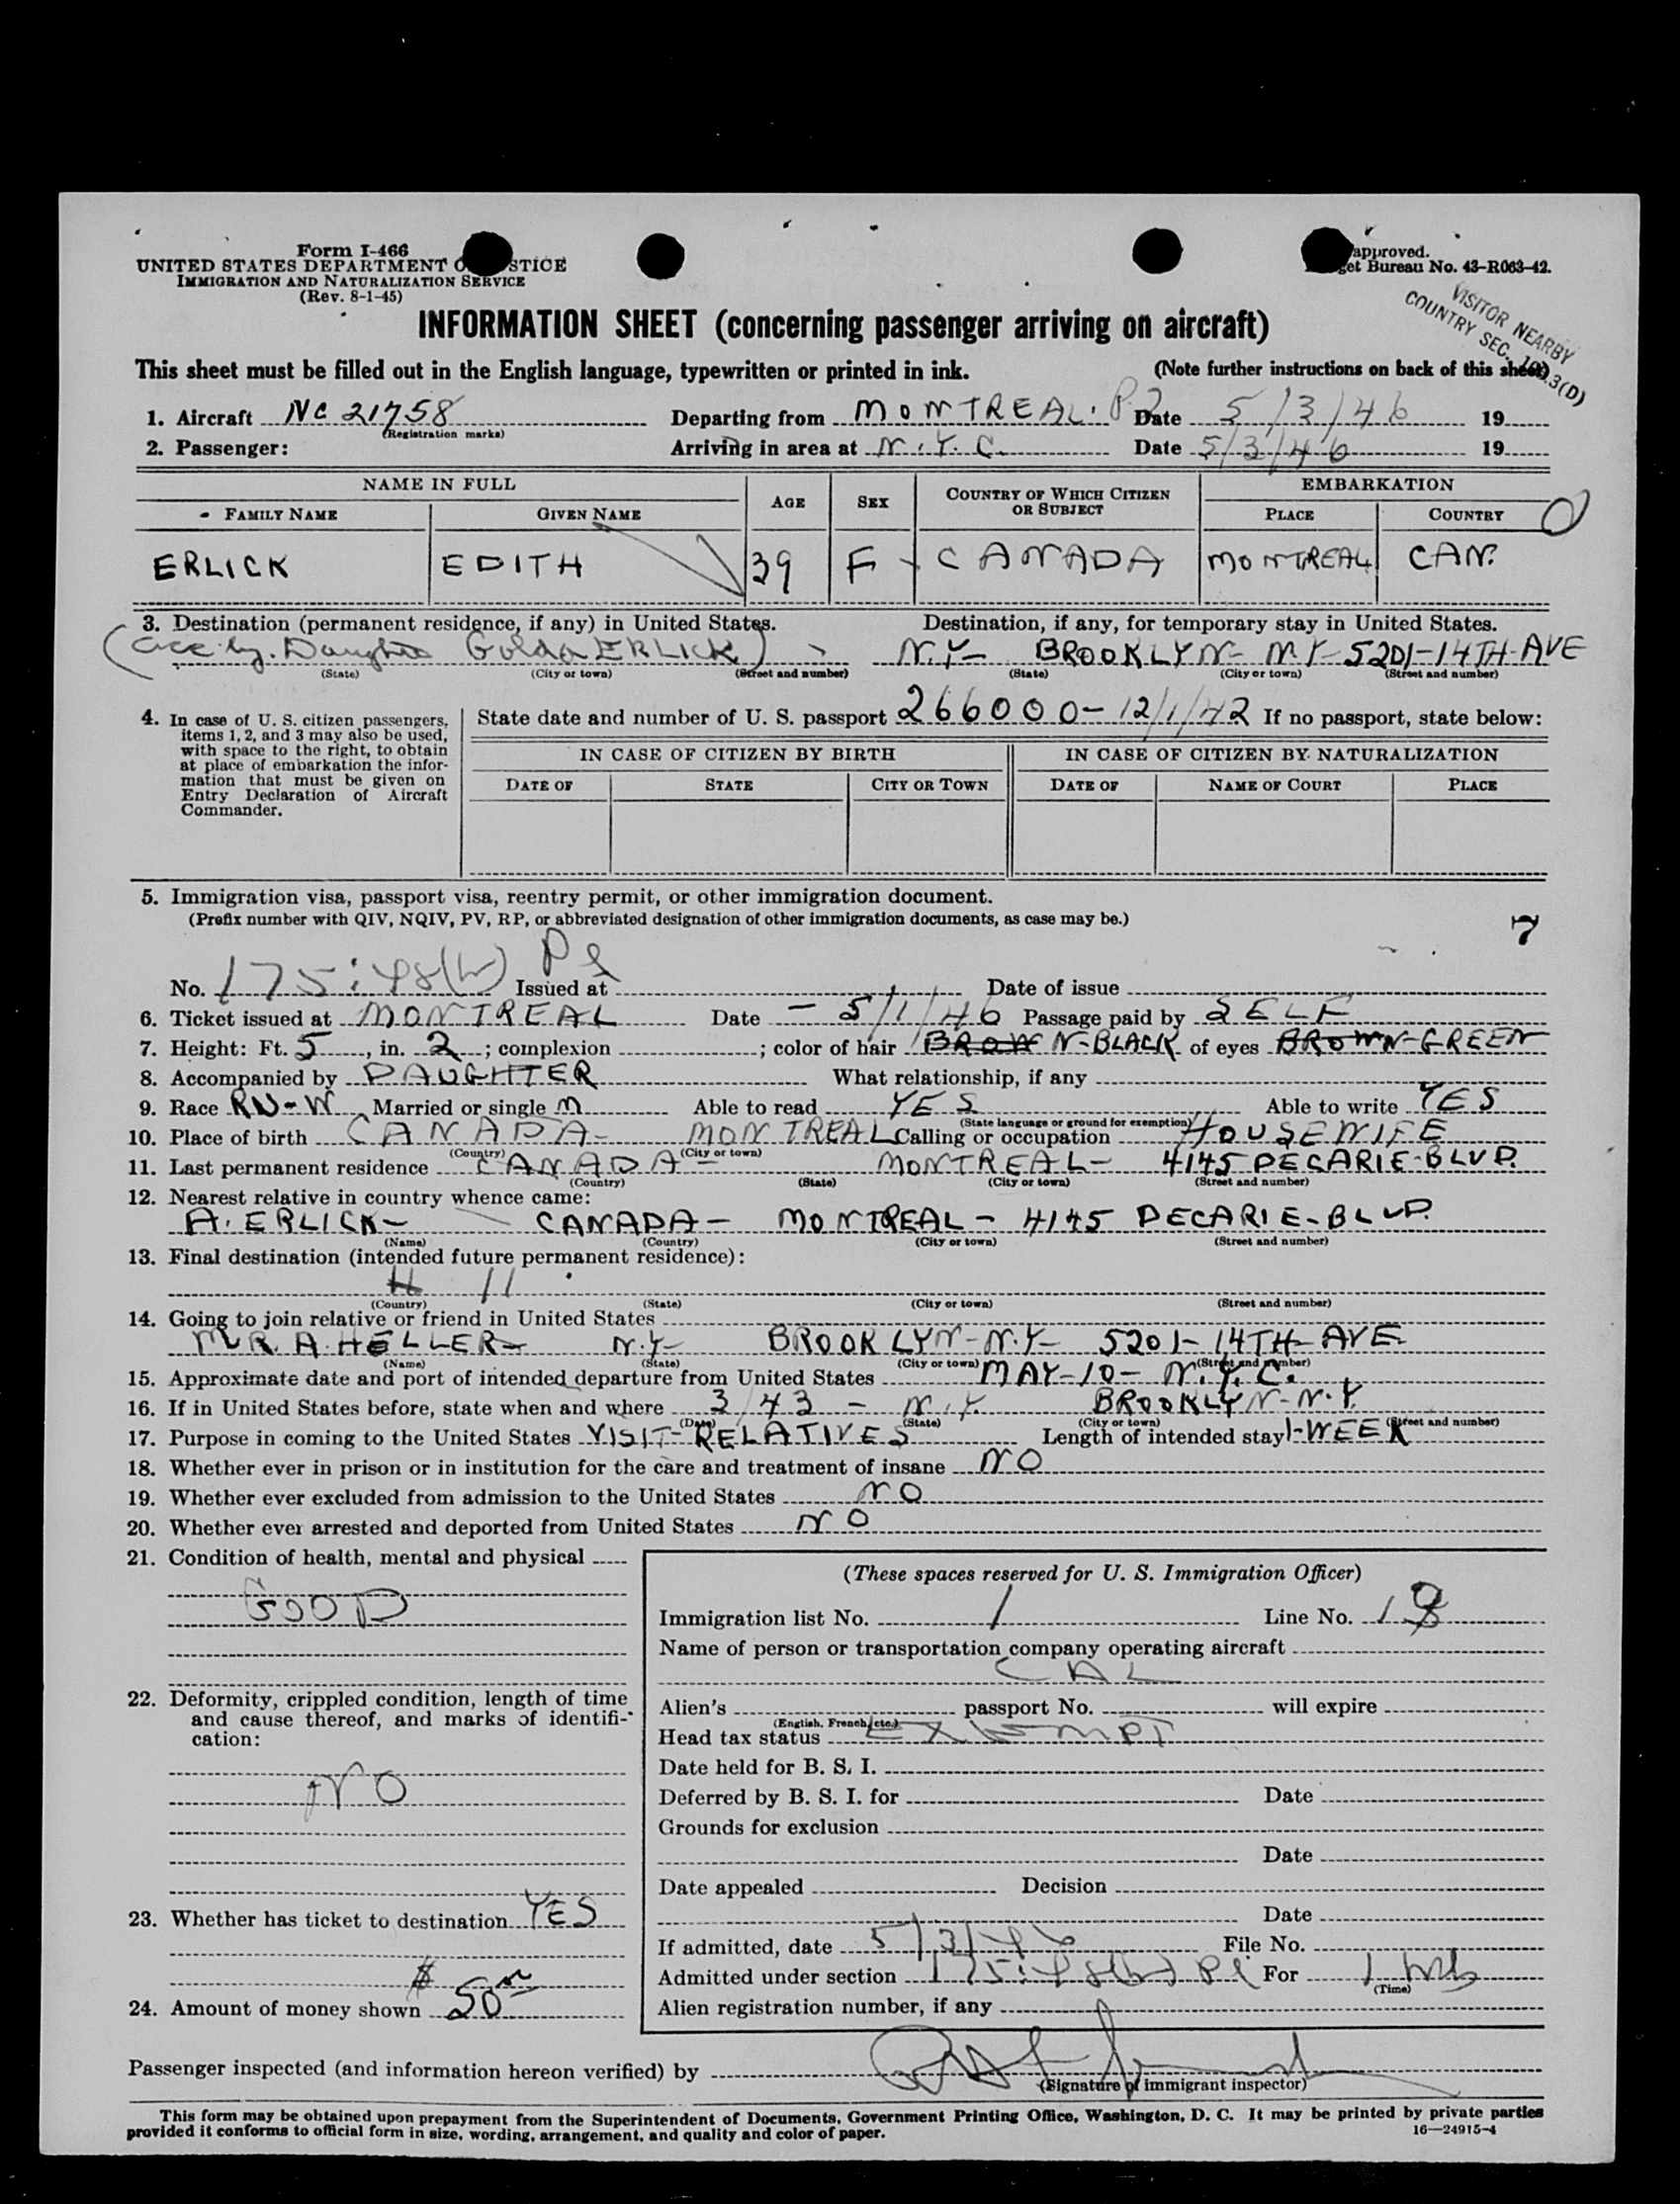 Form I-466
UNITED STATES DEPARTMENT O STICE
IMMIGRATION AND NATURALIZATION SERVICE
(Rev. 8-1-45)
approved.
get Bureau No. 43-R063-42.
VISITOR NEARBY
COUNTRY SEC. 3(D)
INFORMATION SHEET (concerning passenger arriving on aircraft)
This sheet must be filled out in the English language, typewritten or printed in ink. (Note further instructions on back of this sheet)
1. Aircraft NC 21758 Departing from MONTREAL. Date 5/3/46 19
(Registration marks)
2. Passenger: Arriving in area at N.Y.C. Date 5/3/46 19
NAME IN FULL AGE SEX COUNTRY OF WHICH CITIZEN OR SUBJECT EMBARKATION
FAMILY NAME GIVEN NAME PLACE COUNTRY
ERLICK EDITH 39 F CANADA MONTREAL CAN.
3. Destination (permanent residence, if any) in United States. Destination, if any, for temporary stay in United States.
(acc by. Daughter Golda ERLICK) N.Y- BROOKLYN- N.Y- 5201-14TH-AVE
(State) (City or town) (Street and number) (State) (City or town) (Street and number)
4. In case of U. S. citizen passengers, items 1, 2, and 3 may also be used, with space to the right, to obtain at place of embarkation the information that must be given on Entry Declaration of Aircraft Commander.
State date and number of U. S. passport 266000-12/1/42 If no passport, state below:
IN CASE OF CITIZEN BY BIRTH IN CASE OF CITIZEN BY NATURALIZATION
DATE OF STATE CITY OR TOWN DATE OF NAME OF COURT PLACE
5. Immigration visa, passport visa, reentry permit, or other immigration document.
(Prefix number with QIV, NQIV, PV, RP, or abbreviated designation of other immigration documents, as case may be.)
7
No. 175:48(b) Pl Issued at Date of issue
6. Ticket issued at MONTREAL Date - 5/1/46 Passage paid by SELF
7. Height: Ft. 5, in. 2; complexion ; color of hair BROWN-BLACK of eyes BROWN-GREEN
8. Accompanied by DAUGHTER What relationship, if any
9. Race RU-W Married or single M Able to read YES Able to write YES
(State language or ground for exemption)
10. Place of birth CANADA- MONTREAL Calling or occupation HOUSEWIFE
(Country) (City or town)
11. Last permanent residence CANADA- MONTREAL- 4145 DECARIE-BLVD.
(Country) (State) (City or town) (Street and number)
12. Nearest relative in country whence came:
A. ERLICK- CANADA- MONTREAL- 4145 DECARIE-BLVD.
(Name) (Country) (City or town) (Street and number)
13. Final destination (intended future permanent residence):
(Country) (State) (City or town) (Street and number)
14. Going to join relative or friend in United States
MR. A. HELLER- N.Y- BROOKLYN-N.Y- 5201-14TH-AVE
(Name) (State) (City or town) (Street and number)
15. Approximate date and port of intended departure from United States MAY-10- N.Y.C.
16. If in United States before, state when and where 3/43 - N.Y. BROOKLYN-N.Y.
(Date) (State) (City or town) (Street and number)
17. Purpose in coming to the United States VISIT-RELATIVES Length of intended stay 1-WEEK
18. Whether ever in prison or in institution for the care and treatment of insane NO
19. Whether ever excluded from admission to the United States NO
20. Whether ever arrested and deported from United States NO
21. Condition of health, mental and physical
GOOD
22. Deformity, crippled condition, length of time and cause thereof, and marks of identification:
NO
23. Whether has ticket to destination YES
24. Amount of money shown $50
(These spaces reserved for U. S. Immigration Officer)
Immigration list No. 1 Line No. 18
Name of person or transportation company operating aircraft
CAL
Alien's passport No. will expire
(English, French, etc.)
Head tax status EXEMPT
Date held for B. S. I.
Deferred by B. S. I. for Date
Grounds for exclusion
Date
Date appealed Decision
Date
If admitted, date 5/3/46 File No.
Admitted under section 175:48(b) Pl For 1 Mo
(Time)
Alien registration number, if any
Passenger inspected (and information hereon verified) by
(Signature of immigrant inspector)
This form may be obtained upon prepayment from the Superintendent of Documents, Government Printing Office, Washington, D. C. It may be printed by private parties
provided it conforms to official form in size, wording, arrangement, and quality and color of paper. 16—24915-4